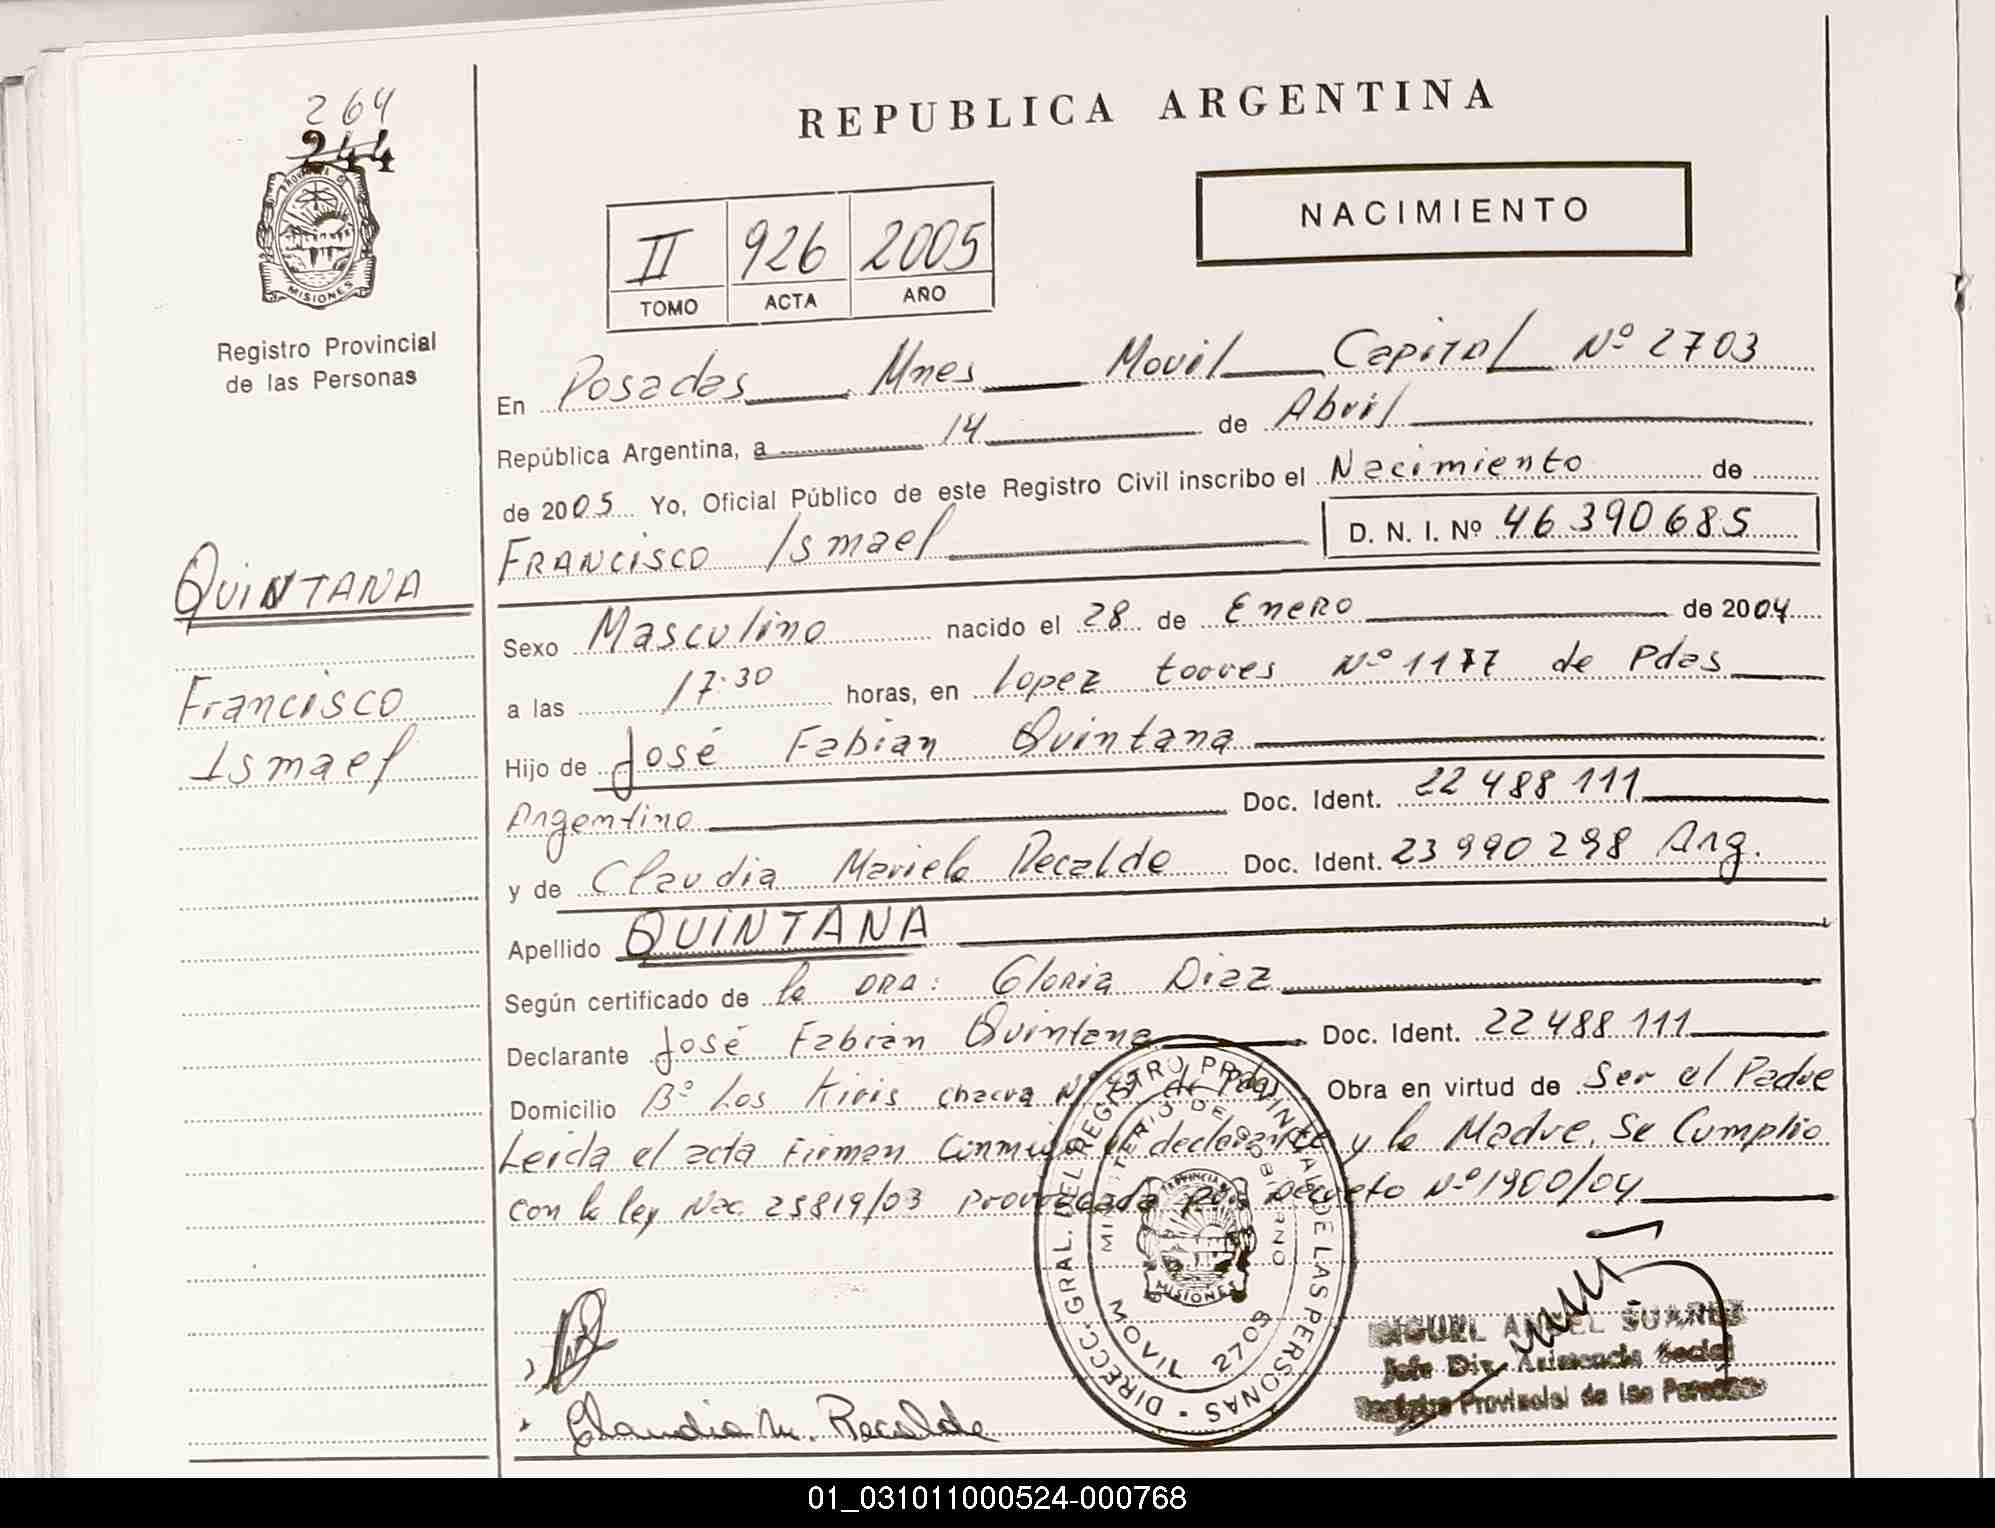 264
244
PROVINCIA DE
MISIONES
Registro Provincial
de las Personas
REPUBLICA ARGENTINA
NACIMIENTO
II 926 2005
TOMO ACTA AÑO
En Posadas Mnes Movil Capital Nº 2703
República Argentina, a 14 de Abril
de 2005 Yo, Oficial Público de este Registro Civil inscribo el Nacimiento de
FRANCISCO Ismael D. N. I. Nº 46390685
QUINTANA
Francisco
Ismael
Sexo Masculino nacido el 28 de ENERO de 2004
a las 17:30 horas, en Lopez torres Nº 1177 de Pdas
Hijo de José Fabian Quintana
Argentino Doc. Ident. 22 488 111
y de Claudia Mariela Recalde Doc. Ident. 23 990 298 Arg.
Apellido QUINTANA
Según certificado de la DRA: Gloria Diaz
Declarante José Fabian Quintana Doc. Ident. 22 488 111
Domicilio Bº Los Kiris chacra Nº de Pdas Obra en virtud de Ser el Padre
Leida el acta Firman Conmigo el declarante y la Madre. Se Cumplio
con la ley Nac. 25819/03 Prorrogada por Decreto Nº 1900/04
DIRECC. GRAL. DEL REGISTRO PROVINCIAL DE LAS PERSONAS
MINISTERIO DE GOBIERNO
PROVINCIA DE
MISIONES
MOVIL 2703
MIGUEL ANGEL SUAREZ
Jefe Div. Asistencia Social
Registro Provincial de las Personas
Claudia M. Recalde
01_031011000524-000768